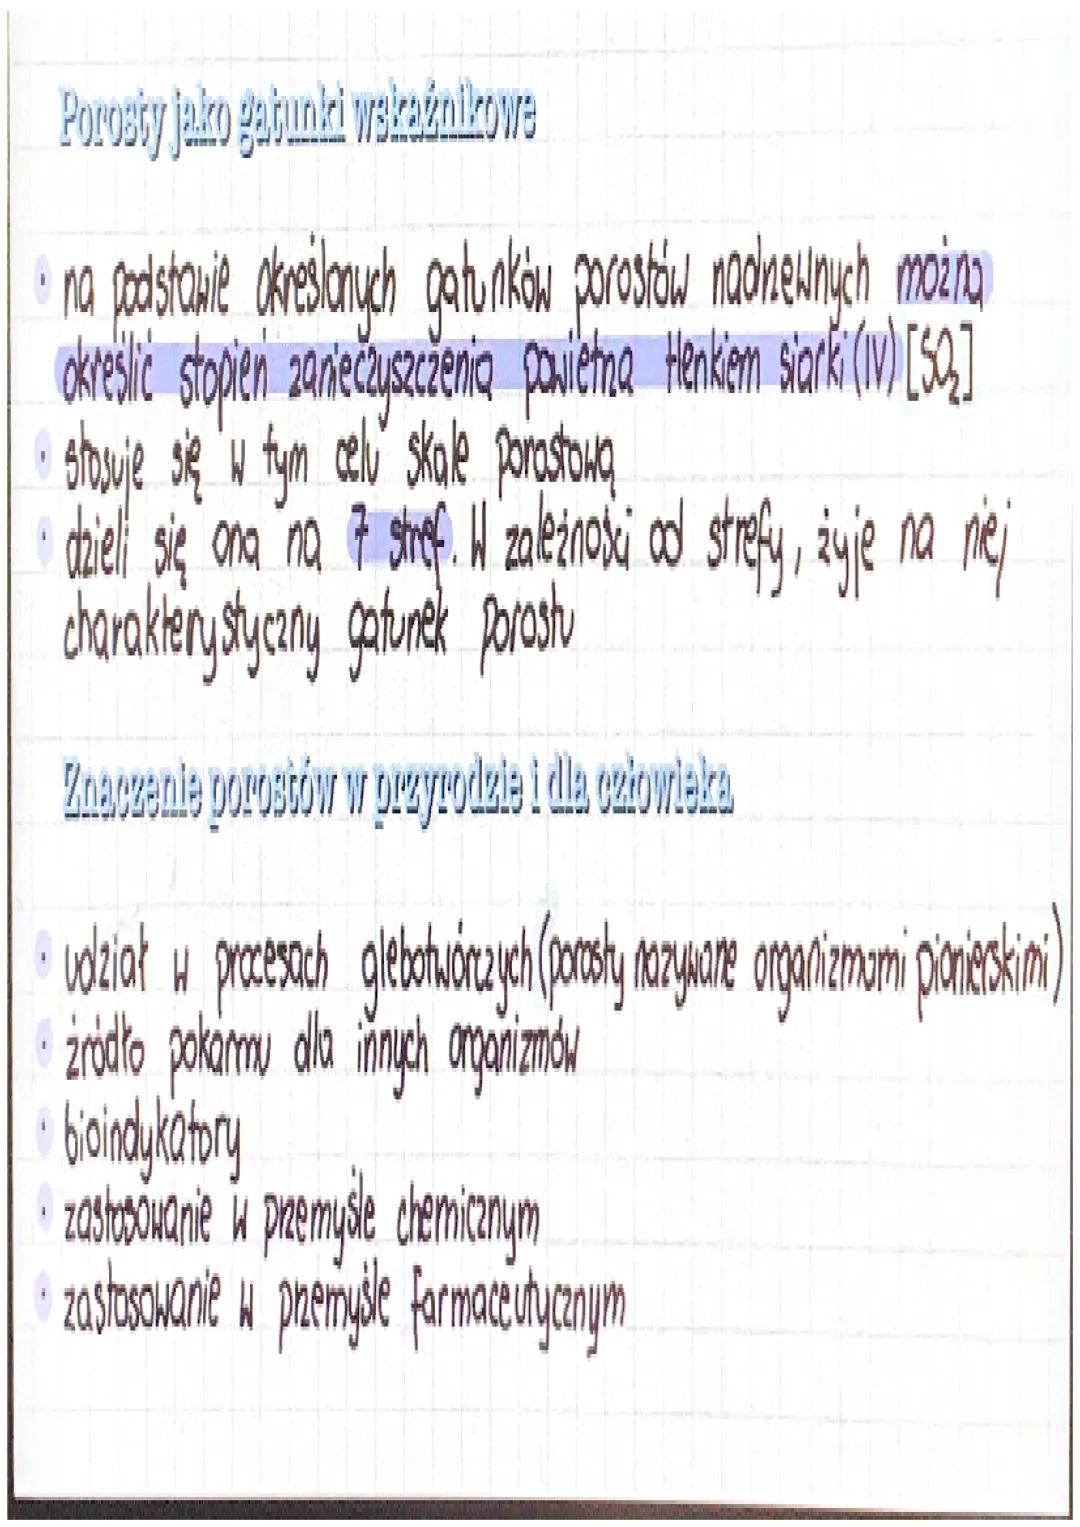 Porosty jako gatunki wskaźnikowe
na podstawie określonych gatunków porostów nadrzewnych można
określić stopień zanieczyszczenia powietrza tlenkiem siarki (IV) [SO₂]
stosuje się w tym celu skale porostową
dzieli się ona na 7 stref. W zależności od strefy, żyje na niej
charakterystyczny gatunek porostu
Znaczenie porostów w przyrodzie i dla człowieka
udział w procesach glebotwórczych (porosty nazywane organizmami pionierskimi)
źródło pokarmu dla innych organizmów
bioindykatory
zastosowanie w przemyśle chemicznym
zastosowanie w przemyśle farmaceutycznym